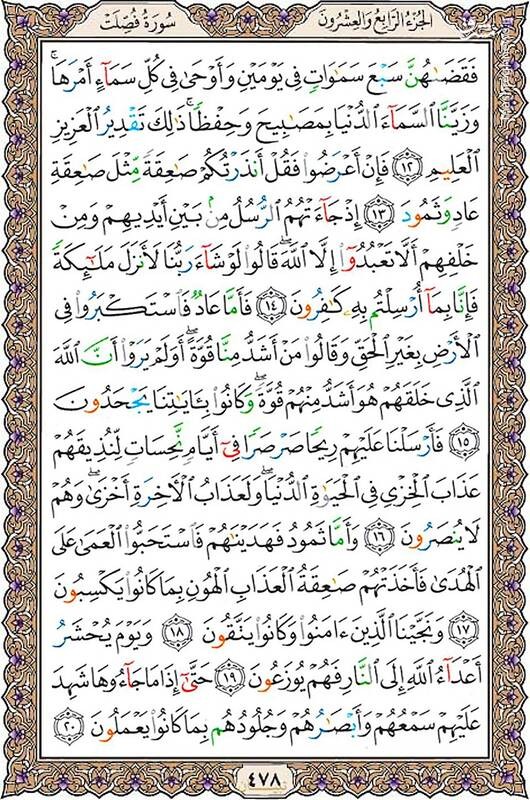 الجزء الرابع والعشرون
سورة فصلت
فَقَضَىٰهُنَّ سَبْعَ سَمَٰوَاتٍ فِى يَوْمَيْنِ وَأَوْحَىٰ فِى كُلِّ سَمَآءٍ أَمْرَهَا ۚ
وَزَيَّنَّا ٱلسَّمَآءَ ٱلدُّنْيَا بِمَصَٰبِيحَ وَحِفْظًا ۚ ذَٰلِكَ تَقْدِيرُ ٱلْعَزِيزِ
ٱلْعَلِيمِ ١٢ فَإِنْ أَعْرَضُوا۟ فَقُلْ أَنذَرْتُكُمْ صَٰعِقَةً مِّثْلَ صَٰعِقَةِ
عَادٍ وَثَمُودَ ١٣ إِذْ جَآءَتْهُمُ ٱلرُّسُلُ مِنۢ بَيْنِ أَيْدِيهِمْ وَمِنْ
خَلْفِهِمْ أَلَّا تَعْبُدُوٓا۟ إِلَّا ٱللَّهَ ۖ قَالُوا۟ لَوْ شَآءَ رَبُّنَا لَأَنزَلَ مَلَٰٓئِكَةً
فَإِنَّا بِمَآ أُرْسِلْتُم بِهِۦ كَٰفِرُونَ ١٤ فَأَمَّا عَادٌ فَٱسْتَكْبَرُوا۟ فِى
ٱلْأَرْضِ بِغَيْرِ ٱلْحَقِّ وَقَالُوا۟ مَنْ أَشَدُّ مِنَّا قُوَّةً ۖ أَوَلَمْ يَرَوْا۟ أَنَّ ٱللَّهَ
ٱلَّذِى خَلَقَهُمْ هُوَ أَشَدُّ مِنْهُمْ قُوَّةً ۖ وَكَانُوا۟ بِـَٔايَٰتِنَا يَجْحَدُونَ
١٥ فَأَرْسَلْنَا عَلَيْهِمْ رِيحًا صَرْصَرًا فِىٓ أَيَّامٍ نَّحِسَاتٍ لِّنُذِيقَهُمْ
عَذَابَ ٱلْخِزْىِ فِى ٱلْحَيَوٰةِ ٱلدُّنْيَا ۖ وَلَعَذَابُ ٱلْءَاخِرَةِ أَخْزَىٰ ۖ وَهُمْ
لَا يُنصَرُونَ ١٦ وَأَمَّا ثَمُودُ فَهَدَيْنَٰهُمْ فَٱسْتَحَبُّوا۟ ٱلْعَمَىٰ عَلَى
ٱلْهُدَىٰ فَأَخَذَتْهُمْ صَٰعِقَةُ ٱلْعَذَابِ ٱلْهُونِ بِمَا كَانُوا۟ يَكْسِبُونَ
١٧ وَنَجَّيْنَا ٱلَّذِينَ ءَامَنُوا۟ وَكَانُوا۟ يَتَّقُونَ ١٨ وَيَوْمَ يُحْشَرُ
أَعْدَآءُ ٱللَّهِ إِلَى ٱلنَّارِ فَهُمْ يُوزَعُونَ ١٩ حَتَّىٰٓ إِذَا مَا جَآءُوهَا شَهِدَ
عَلَيْهِمْ سَمْعُهُمْ وَأَبْصَٰرُهُمْ وَجُلُودُهُم بِمَا كَانُوا۟ يَعْمَلُونَ ٢٠
٤٧٨